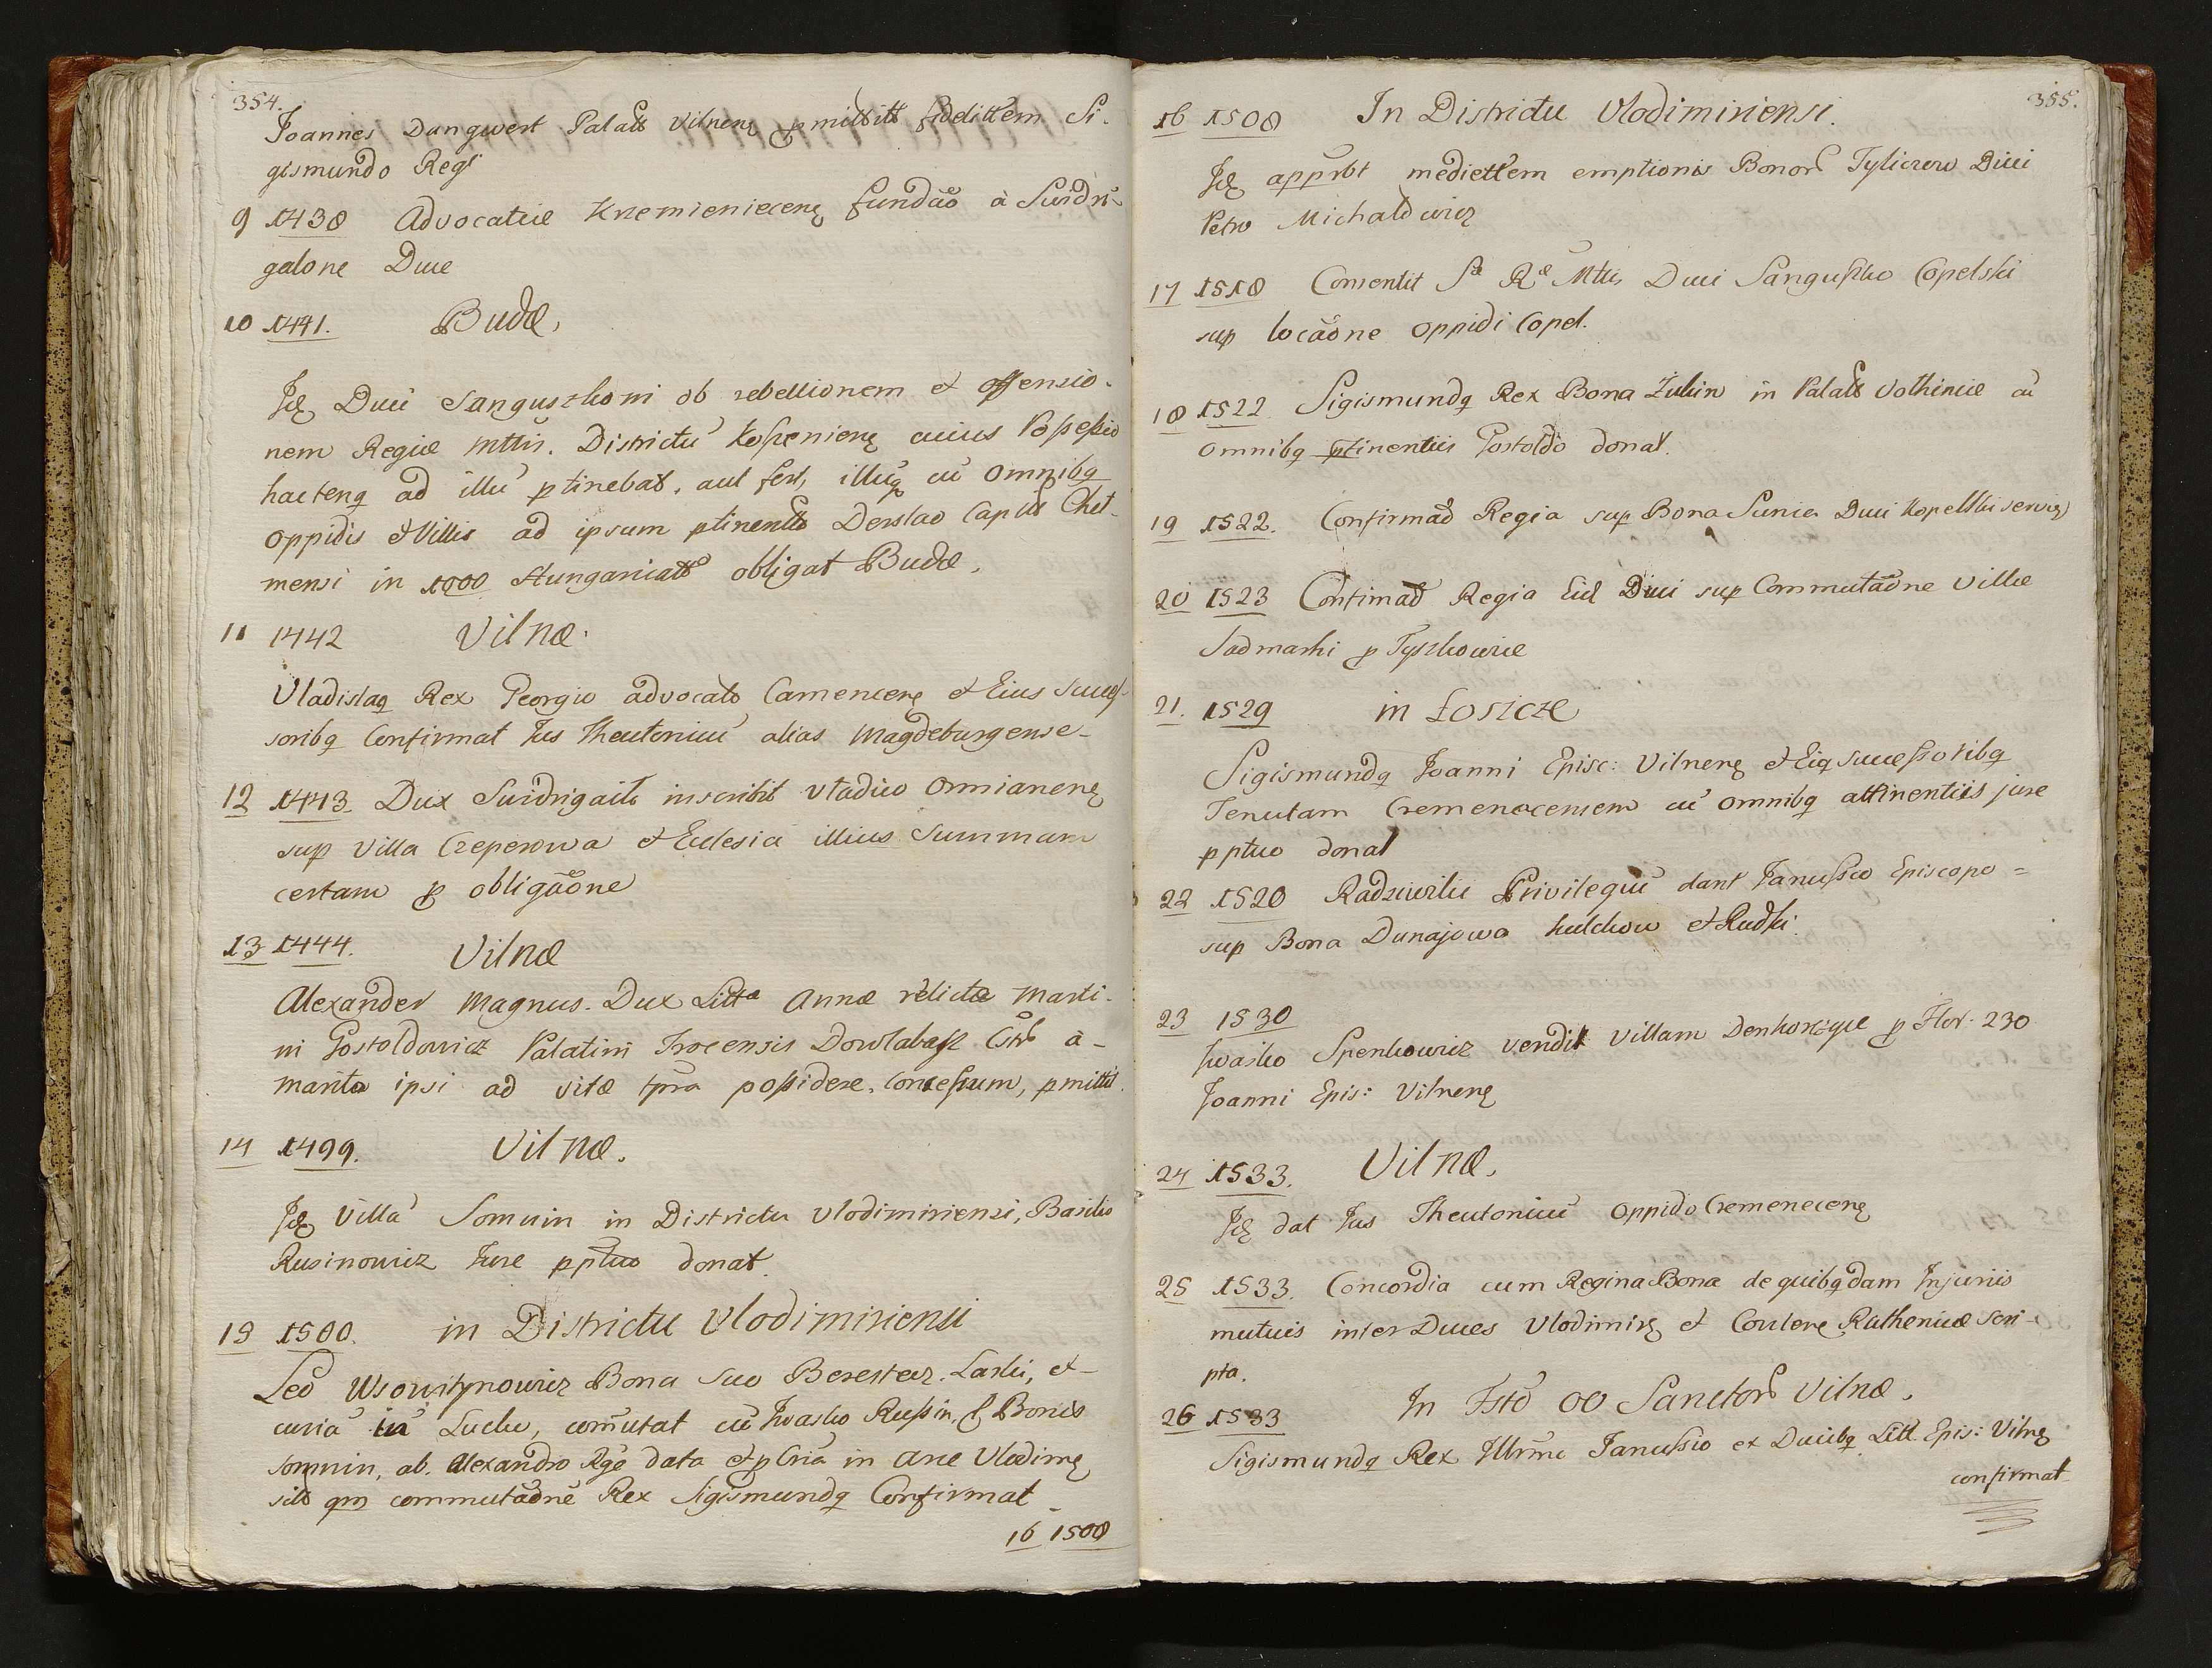 354.
Joannes Dangwert Palatt Vilnenę pmittitt fidelittem Si-
gismundo Regi
9 1438 Advocatiæ Krzemieniecenę fundão à Swidri-
galone Duce
10 1441. Budæ,
Idę Duci Sanguszkoni ob rebellionem et offensio-
nem Regiæ Mttis. Districtũ Kossenienę cuius Possessio
hactenq ad illũ ptinebat, aufert, illuq cũ omnibq
oppidis et Villis ad ipsum ptinentts Derslao Captt Chel-
mensi in 1000 Hungaricatt obligat Budæ.
11 1442 Vilnæ.
Vladislaq Rex Georgio advocato Camencenę et Eius succes-
soribq Confirmat Jus Theutonicũ alias Magdeburgense
12 1443. Dux Suidrigailo inscribit Vladico Ormianenę
sup Villa Czeperowa et Ecclesiã illius Summam
certam p obligãone
13 1444. Vilnæ
Alexander Magnus Dux Litta Annæ relictæ Marti-
ni Gostoldowicz Palatini Trocensis Dowlabasz Cstr à
marito ipsi ad vitæ tpra possidere, concessum, pmittit.
14 1499. Vilnæ.
Idę Villã Somuin in Districtu Vlodimiriensi, Basilio
Rusinowicz Jure pptuo donat.
15 1500. in Districtu Vlodimiriensi
Leo Wsowitynowicz Bona sua Berestecz. Laski, et
curiã in Lucku, com̃utat cũ Iwasko Russin, p Bonis
somnin, ab Alexandro Rge data et p Criã in arce Vlodimę
sitt qm commutãonẽ Rex Sigismundq Confirmat
16 1508
355.
16 1508 In Districtu Vlodimiriensi.
Idę apprbt mediettem emptionis Bonor Tyliczow Duci
Petro Michaldwicz
17 1518 Consentit Sa Ra Mttis Duci Sangussko Copelski
sup locãone oppidi Copel.
18 1522 Sigismundq Rex Bona Zulin in Palatt Volhiniæ cũ
omnibq ptinentiis Gostoldo donat.
19 1522. Confirmão Regia sup Bona Sunia Duci Kopelski serviẽ
20 1523 Confimão Regia Eid Duci sup Commutãone Villæ
Sadmarki p Tyszkowce
21. 1529 in Łosicze
Sigismundq Joanni Episc: Vilnenę et Eiq successoribq
Tenutam Cremenecensem cũ omnibq attinentiis jure
pptuo donat
22 1520 Radziwilii Privilegiũ dant Janussio Episcopo =
sup Bona Dunajowa hulchow et Rudki.
23 1530
Iwasko Spenkowicz vendit villam Denkowzyce p Flor. 230
Joanni Epis: Vilnenę
24 1533. Vilnæ.
Idę dat Jus Theutonicũ oppido Cremenecenę
25 1533. Concordia cum Regina Bona de quibqdam Injuriis
mutuis inter Duces Vlodimirę et Coulere Ruthenicæ scri-
pta.
26 1533 In Fsto OO Sanctor Vilnæ.
Sigismundq Rex Illrmo Janussio ex Ducibq Litt. Epis: Vilnę
confirmat